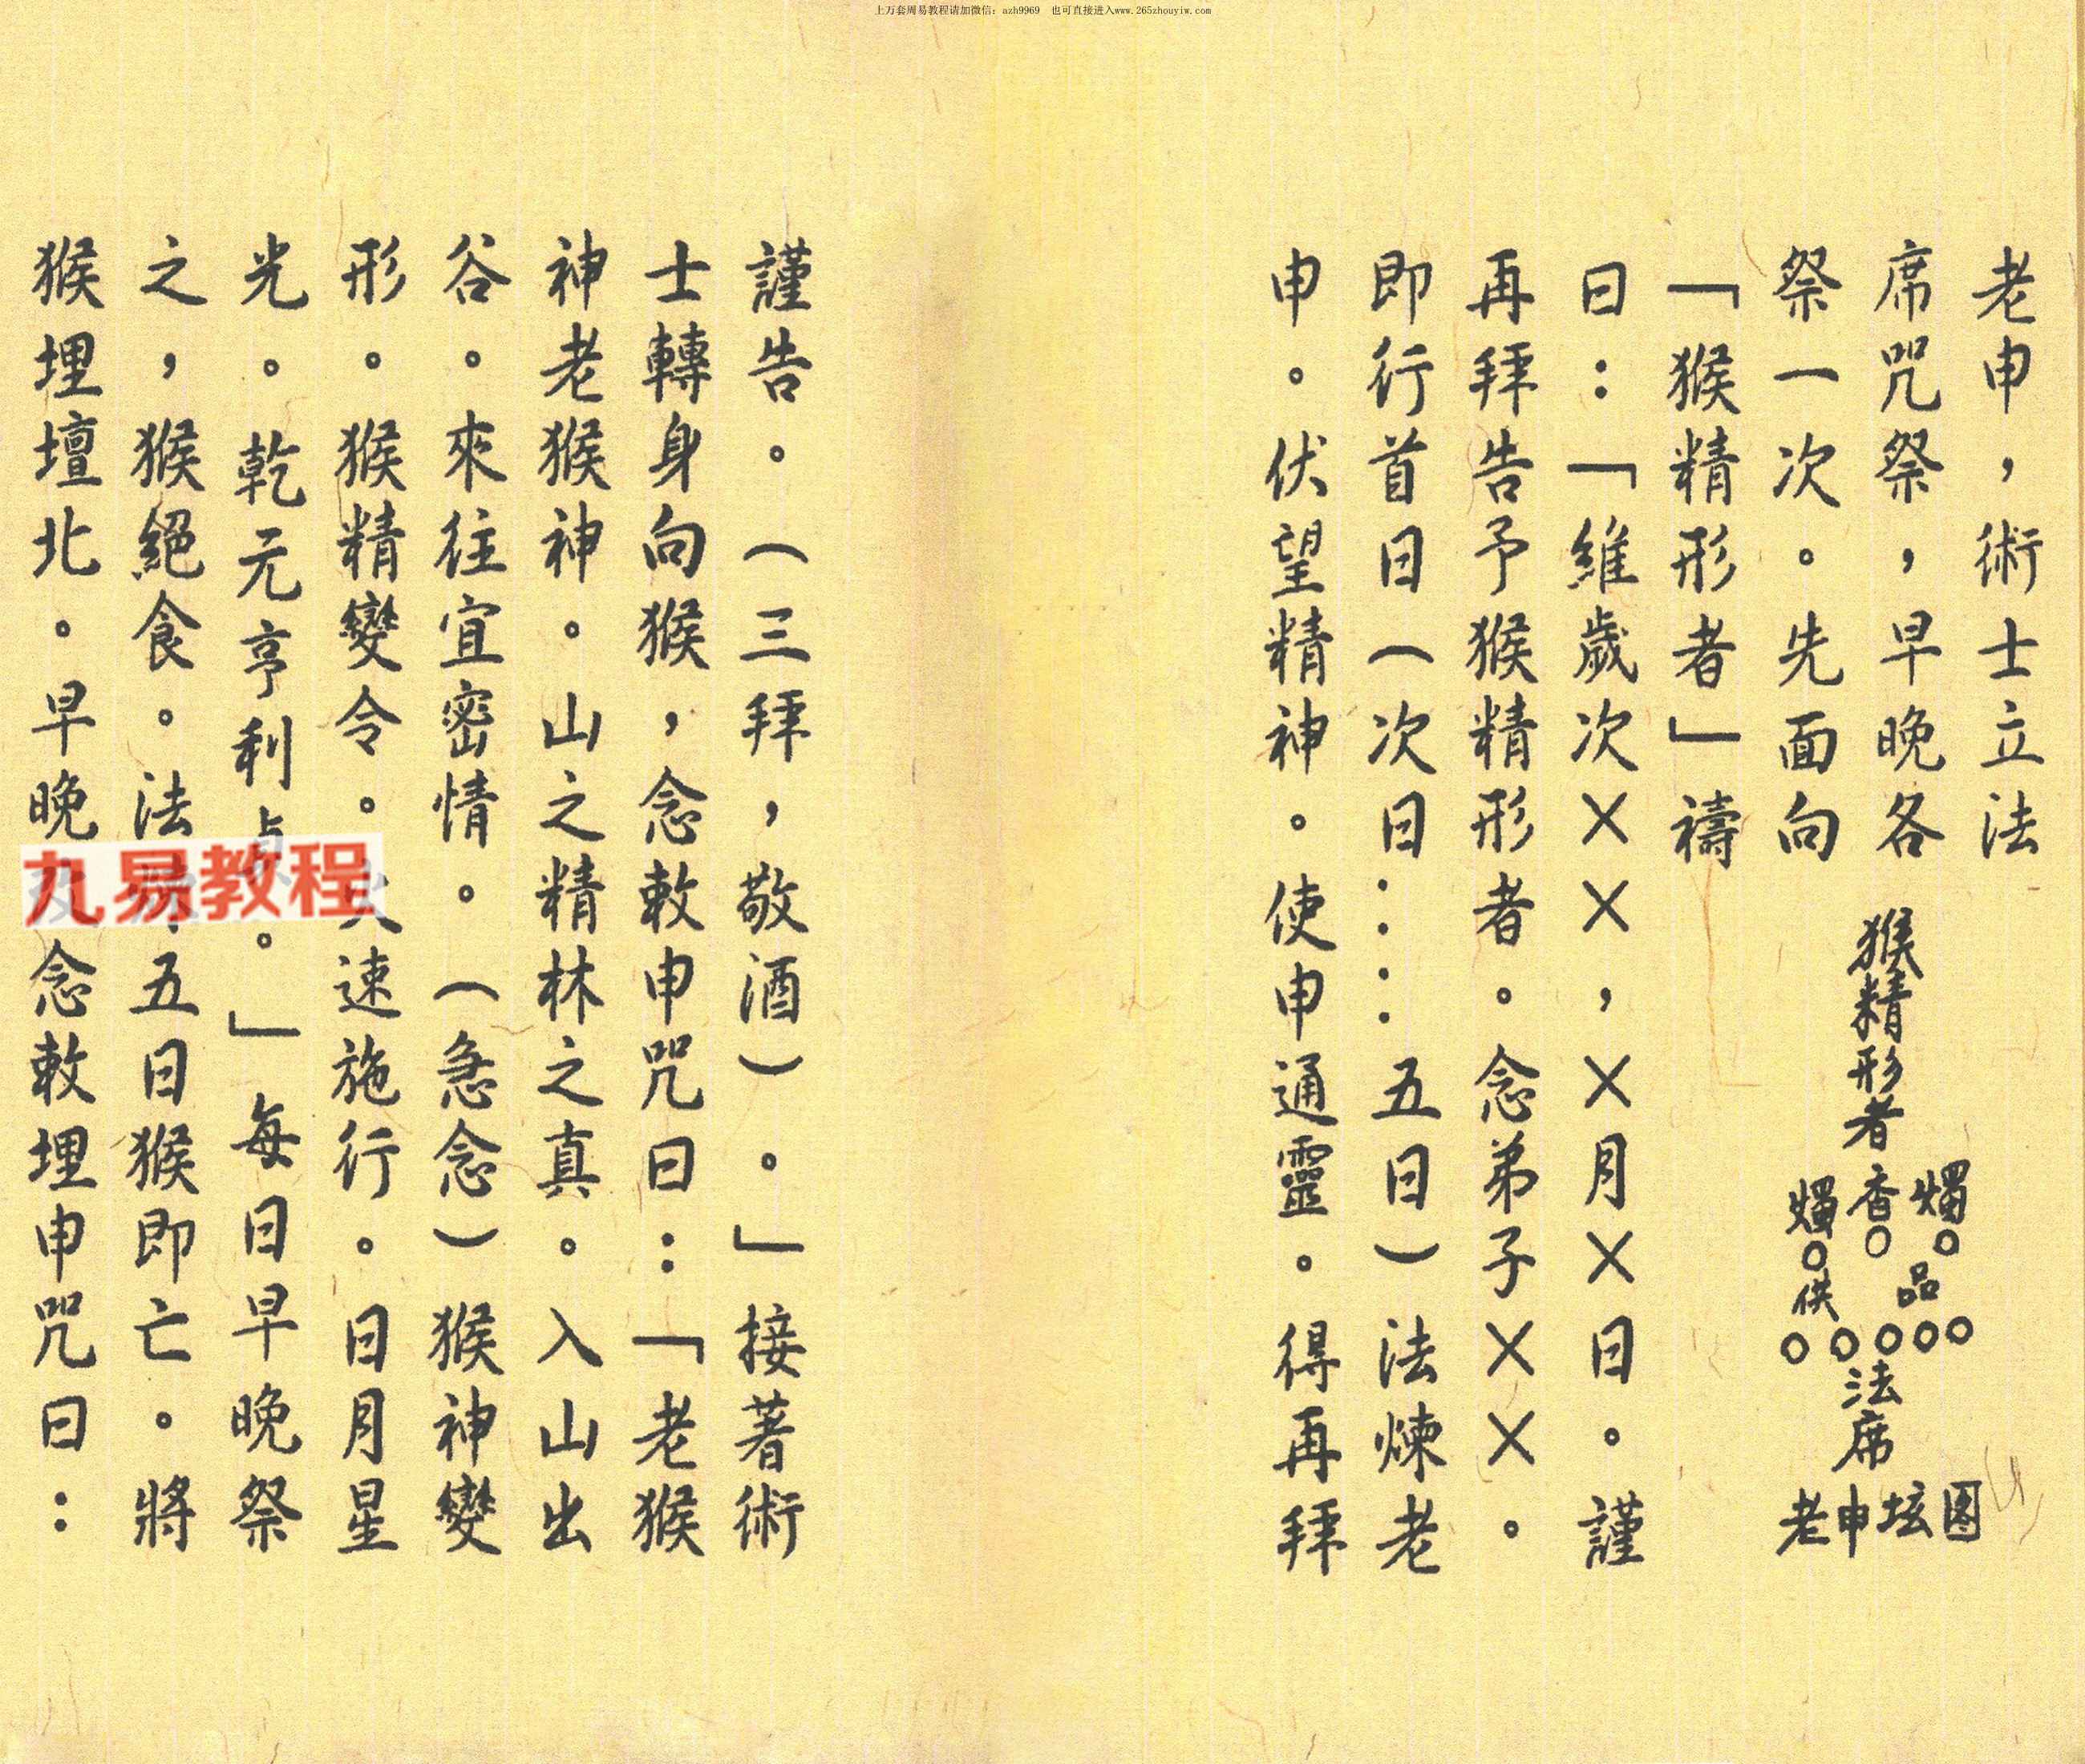 上万套周易教程请加微信：azh9969 也可直接进入www.265zhouyiw.com
老申，術士立法
席咒祭，早晚各
祭一次。先面向
「猴精形者」禱
曰：「維歲次××，×月×日。謹
再拜告予猴精形者。念弟子××。
即行首日（次日……五日）法煉老
申。伏望精神。使申通靈。得再拜
猴精形者
燭 香 燭
供 品
法席
老申坛图
謹告。（三拜，敬酒）。」接著術
士轉身向猴，念敕申咒曰：「老猴
神老猴神。山之精林之真。入山出
谷。來往宜密情。（急念）猴神變
形。猴精變令。火速施行。日月星
光。乾元亨利貞。」每日早晚祭
之，猴絕食。法 五日猴即亡。將
猴埋壇北。早晚 念敕埋申咒曰：
九易教程